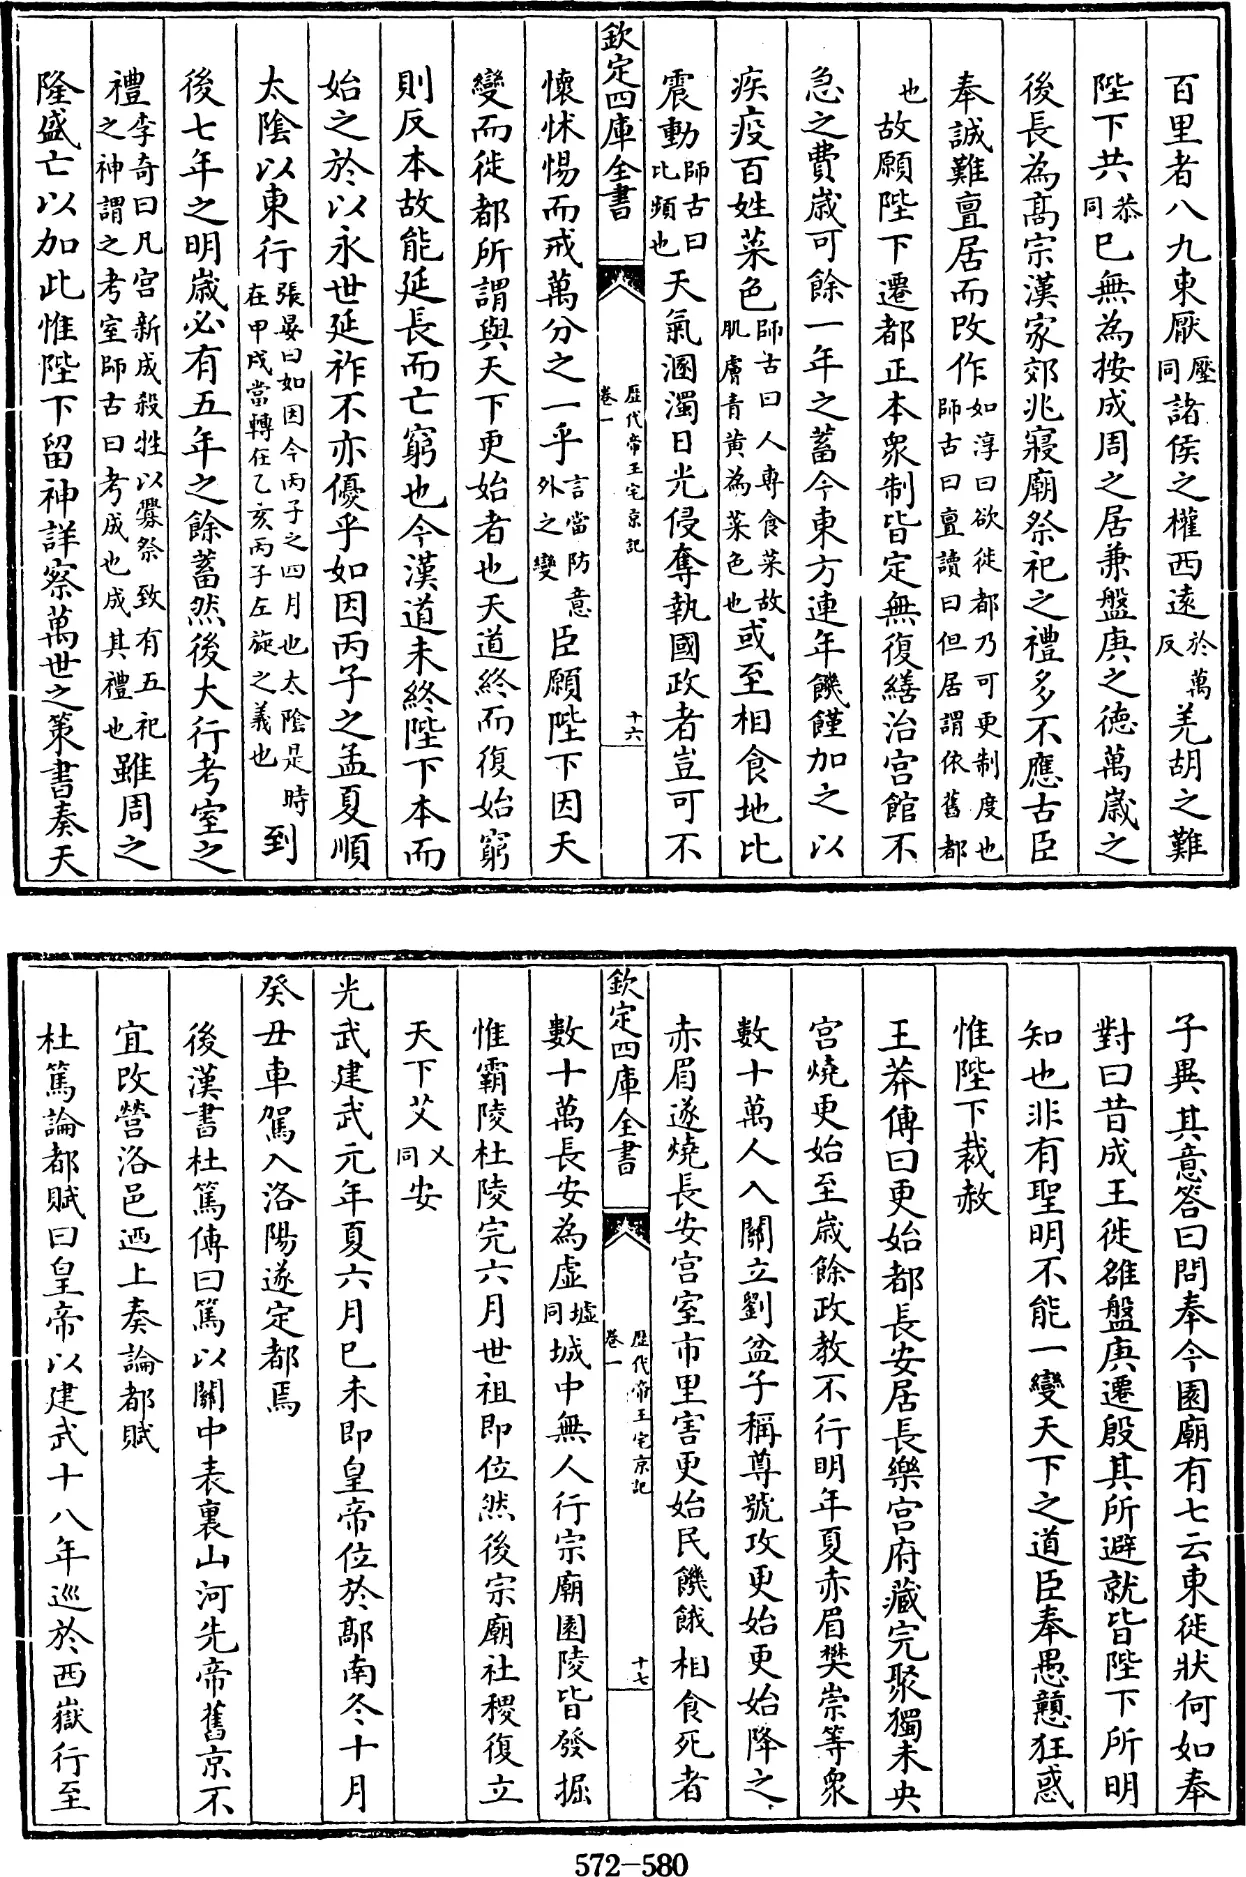 百里者八九東厭壓同諸侯之權西遠於萬反羌胡之難
陛下共恭同己無為按成周之居兼盤庚之德萬歲之
後長為高宗漢家郊兆寢廟祭祀之禮多不應古臣
奉誠難亶居而改作如淳曰欲徙都乃可更制度也師古曰亶讀曰但居謂依舊都
也故願陛下遷都正本衆制皆定無復繕治宮館不
急之費歲可餘一年之蓄今東方連年饑饉加之以
疾疫百姓菜色師古曰人專食菜故肌膚青黄為菜色也或至相食地比
震動師古曰比頻也天氣溷濁日光侵奪執國政者豈可不
欽定四庫全書
歷代帝王宅京記
卷一
十六
懷怵惕而戒萬分之一乎言當防意外之變臣願陛下因天
變而徙都所謂與天下更始者也天道終而復始窮
則反本故能延長而亡窮也今漢道未終陛下本而
始之於以永世延祚不亦優乎如因丙子之孟夏順
太陰以東行張晏曰如因今丙子之四月也太陰是時在甲戌當轉在乙亥丙子左旋之義也到
後七年之明歲必有五年之餘蓄然後大行考室之
禮李奇曰凡宮新成殺牲以釁祭致有五祀之神謂之考室師古曰考成也成其禮也雖周之
隆盛亡以加此惟陛下留神詳察萬世之策書奏天
子異其意答曰問奉今園廟有七云東徙狀何如奉
對曰昔成王徙雒盤庚遷殷其所避就皆陛下所明
知也非有聖明不能一變天下之道臣奉愚戇狂惑
惟陛下裁赦
王莽傳曰更始都長安居長樂宮府藏完聚獨未央
宮燒更始至歲餘政教不行明年夏赤眉樊崇等衆
數十萬人入關立劉盆子稱尊號攻更始更始降之
赤眉遂燒長安宮室市里害更始民饑餓相食死者
欽定四庫全書
歷代帝王宅京記
卷一
十七
數十萬長安為虛墟同城中無人行宗廟園陵皆發掘
惟霸陵杜陵完六月世祖即位然後宗廟社稷復立
天下艾乂同安
光武建武元年夏六月己未即皇帝位於鄗南冬十月
癸丑車駕入洛陽遂定都焉
後漢書杜篤傳曰篤以關中表裏山河先帝舊京不
宜改營洛邑迺上奏論都賦
杜篤論都賦曰皇帝以建武十八年巡於西嶽行至
572-580